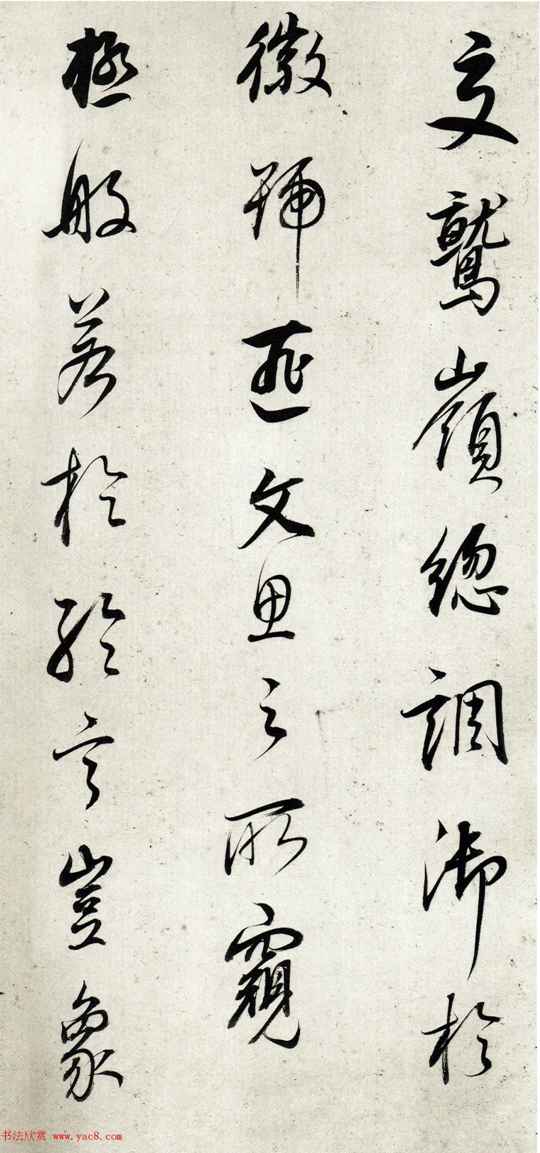 交鷲嶺總調御於
徽號匪文思之所窺
極般若於綸言豈象
书法欣赏 www.yac8.com